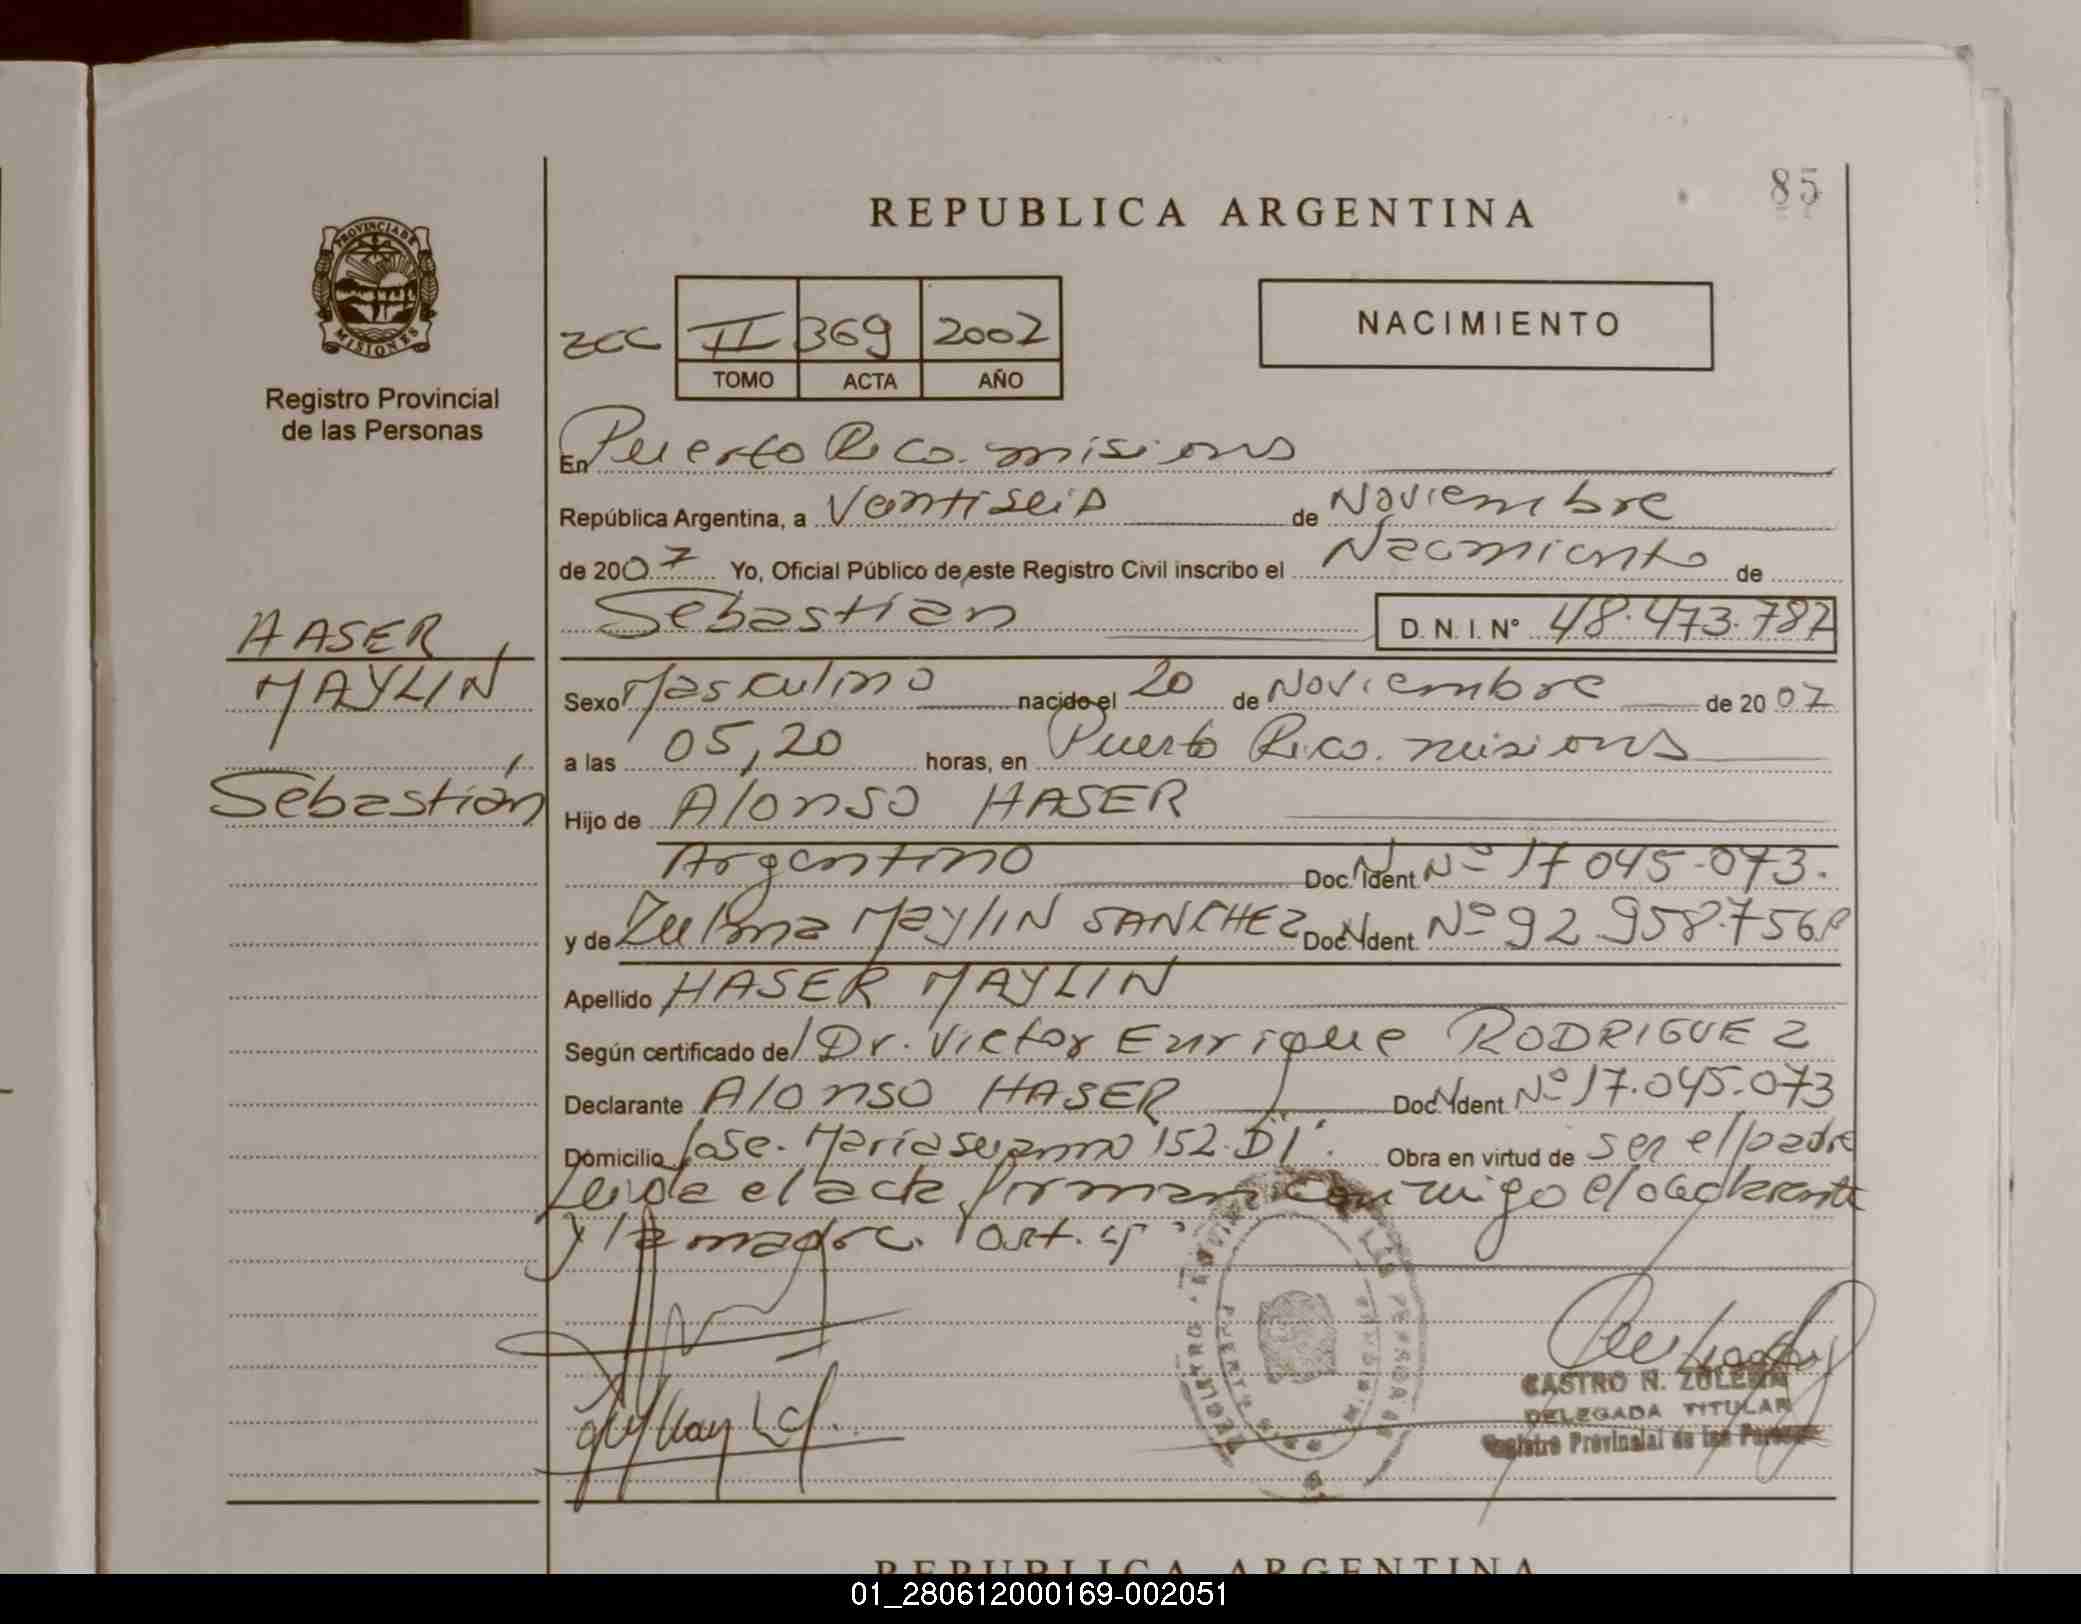 85
REPUBLICA ARGENTINA
PROVINCIA DE
MISIONES
Registro Provincial
de las Personas
II 369 2002
TOMO ACTA AÑO
NACIMIENTO
En Puerto Rico. misiones
República Argentina, a Ventiseis de Noviembre
de 2007 Yo, Oficial Público de este Registro Civil inscribo el Nacimiento de
Sebastián D.N.I. Nº 48.473.782
HASER
MAYLIN
Sebastián
Sexo Masculino nacido el 20 de Noviembre de 2007
a las 05,20 horas, en Puerto Rico. misiones
Hijo de Alonso HASER
Argentino Doc. Ident. Nº 17 045.073.
y de Zulma MAYLIN SANCHEZ Doc. Ident. Nº 92 958.756
Apellido HASER MAYLIN
Según certificado del Dr. Victor Enrique RODRIGUEZ
Declarante Alonso HASER Doc. Ident. Nº 17.045.073
Domicilio Jose. Maria 152. Obra en virtud de ser el padre
Leida el acta firman conmigo el declarante
y la madre.
CASTRO N. ZULEMA
DELEGADA TITULAR
Registro Provincial de las Personas
REPUBLICA ARGENTINA
01_280612000169-002051